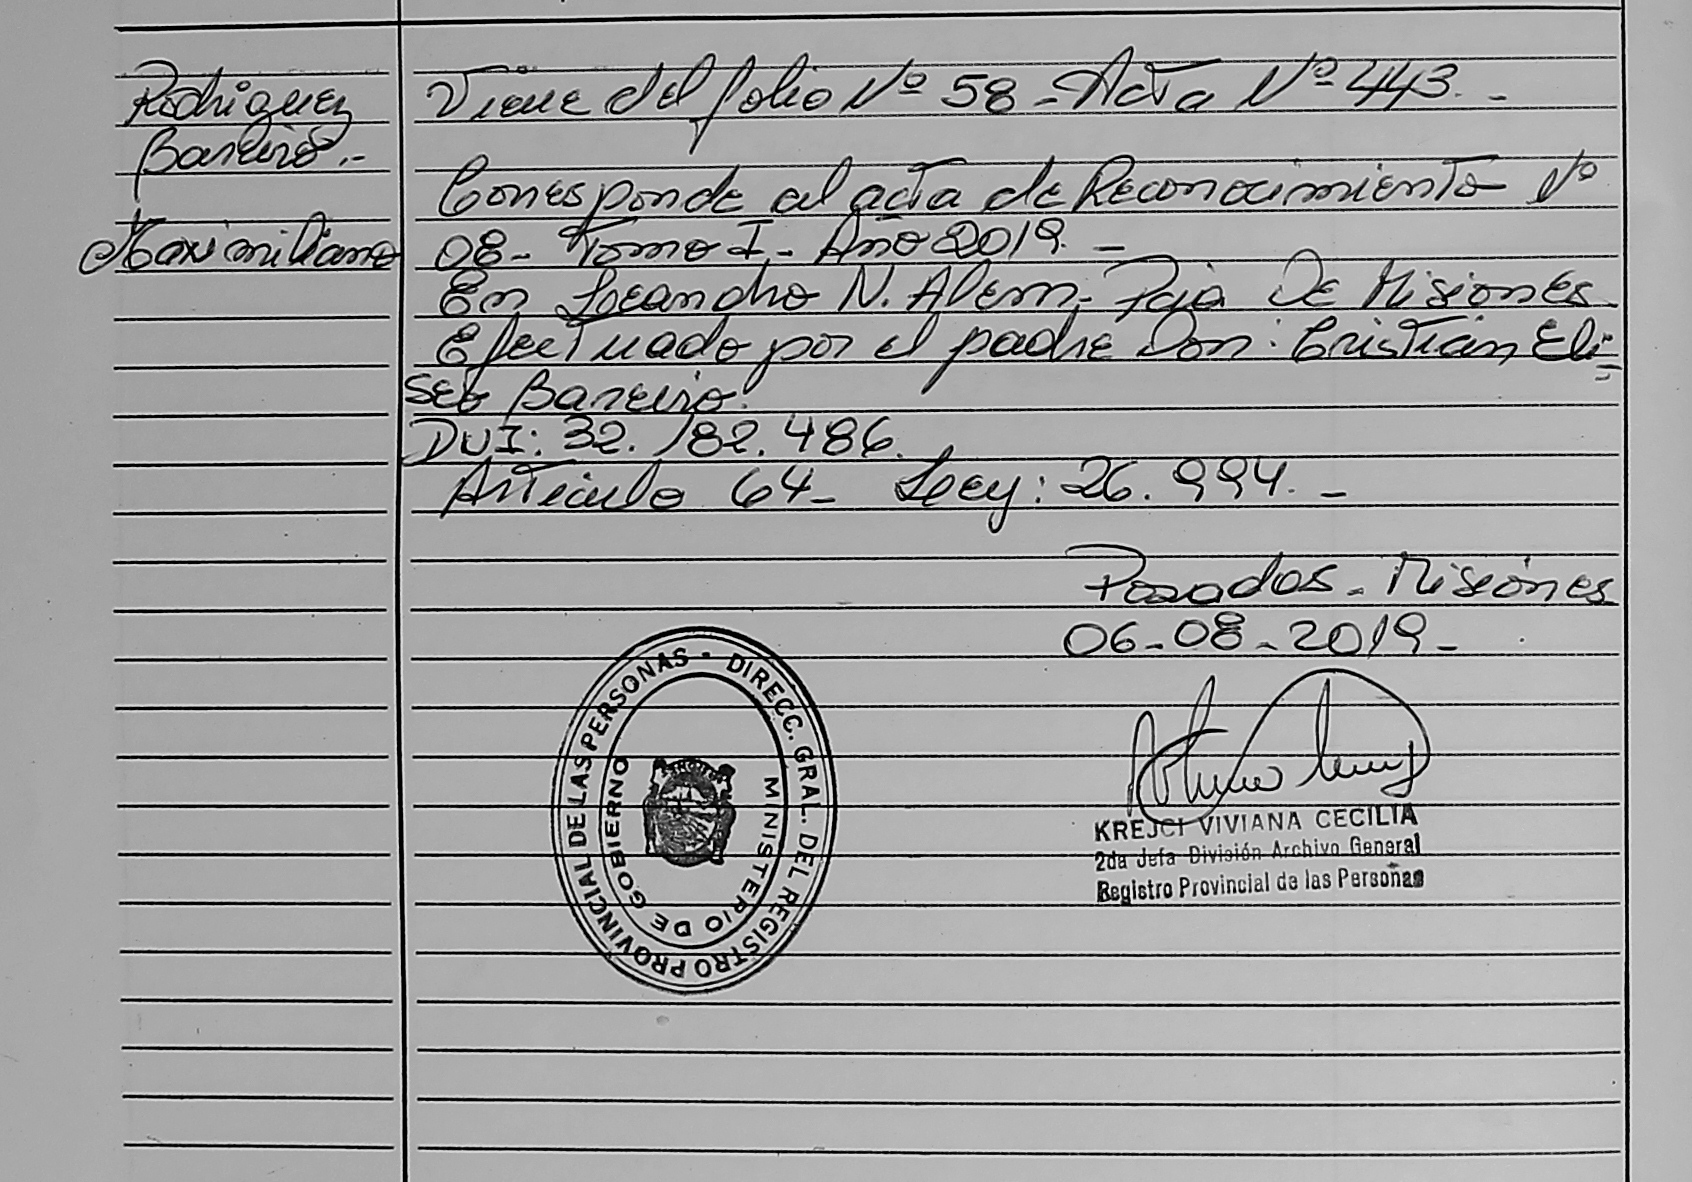 Rodriguez
Bareiro.-
Maximiliano
Viene del folio Nº 58 - Acta Nº 443. -
Corresponde al acta de Reconocimiento Nº
08 - Tomo I - Año 2019. -
En Leandro N. Alem - Pcia De Misiones
Efectuado por el padre Don: Cristian Eli=
seo Bareiro.
DNI: 32.182.486.
Articulo 64 - Ley: 26.994. -
Posadas - Misiones
06-08-2019 -
DIRECC. GRAL. DEL REGISTRO PROVINCIAL DE LAS PERSONAS -
MINISTERIO DE GOBIERNO
KREJCI VIVIANA CECILIA
2da Jefa División Archivo General
Registro Provincial de las Personas